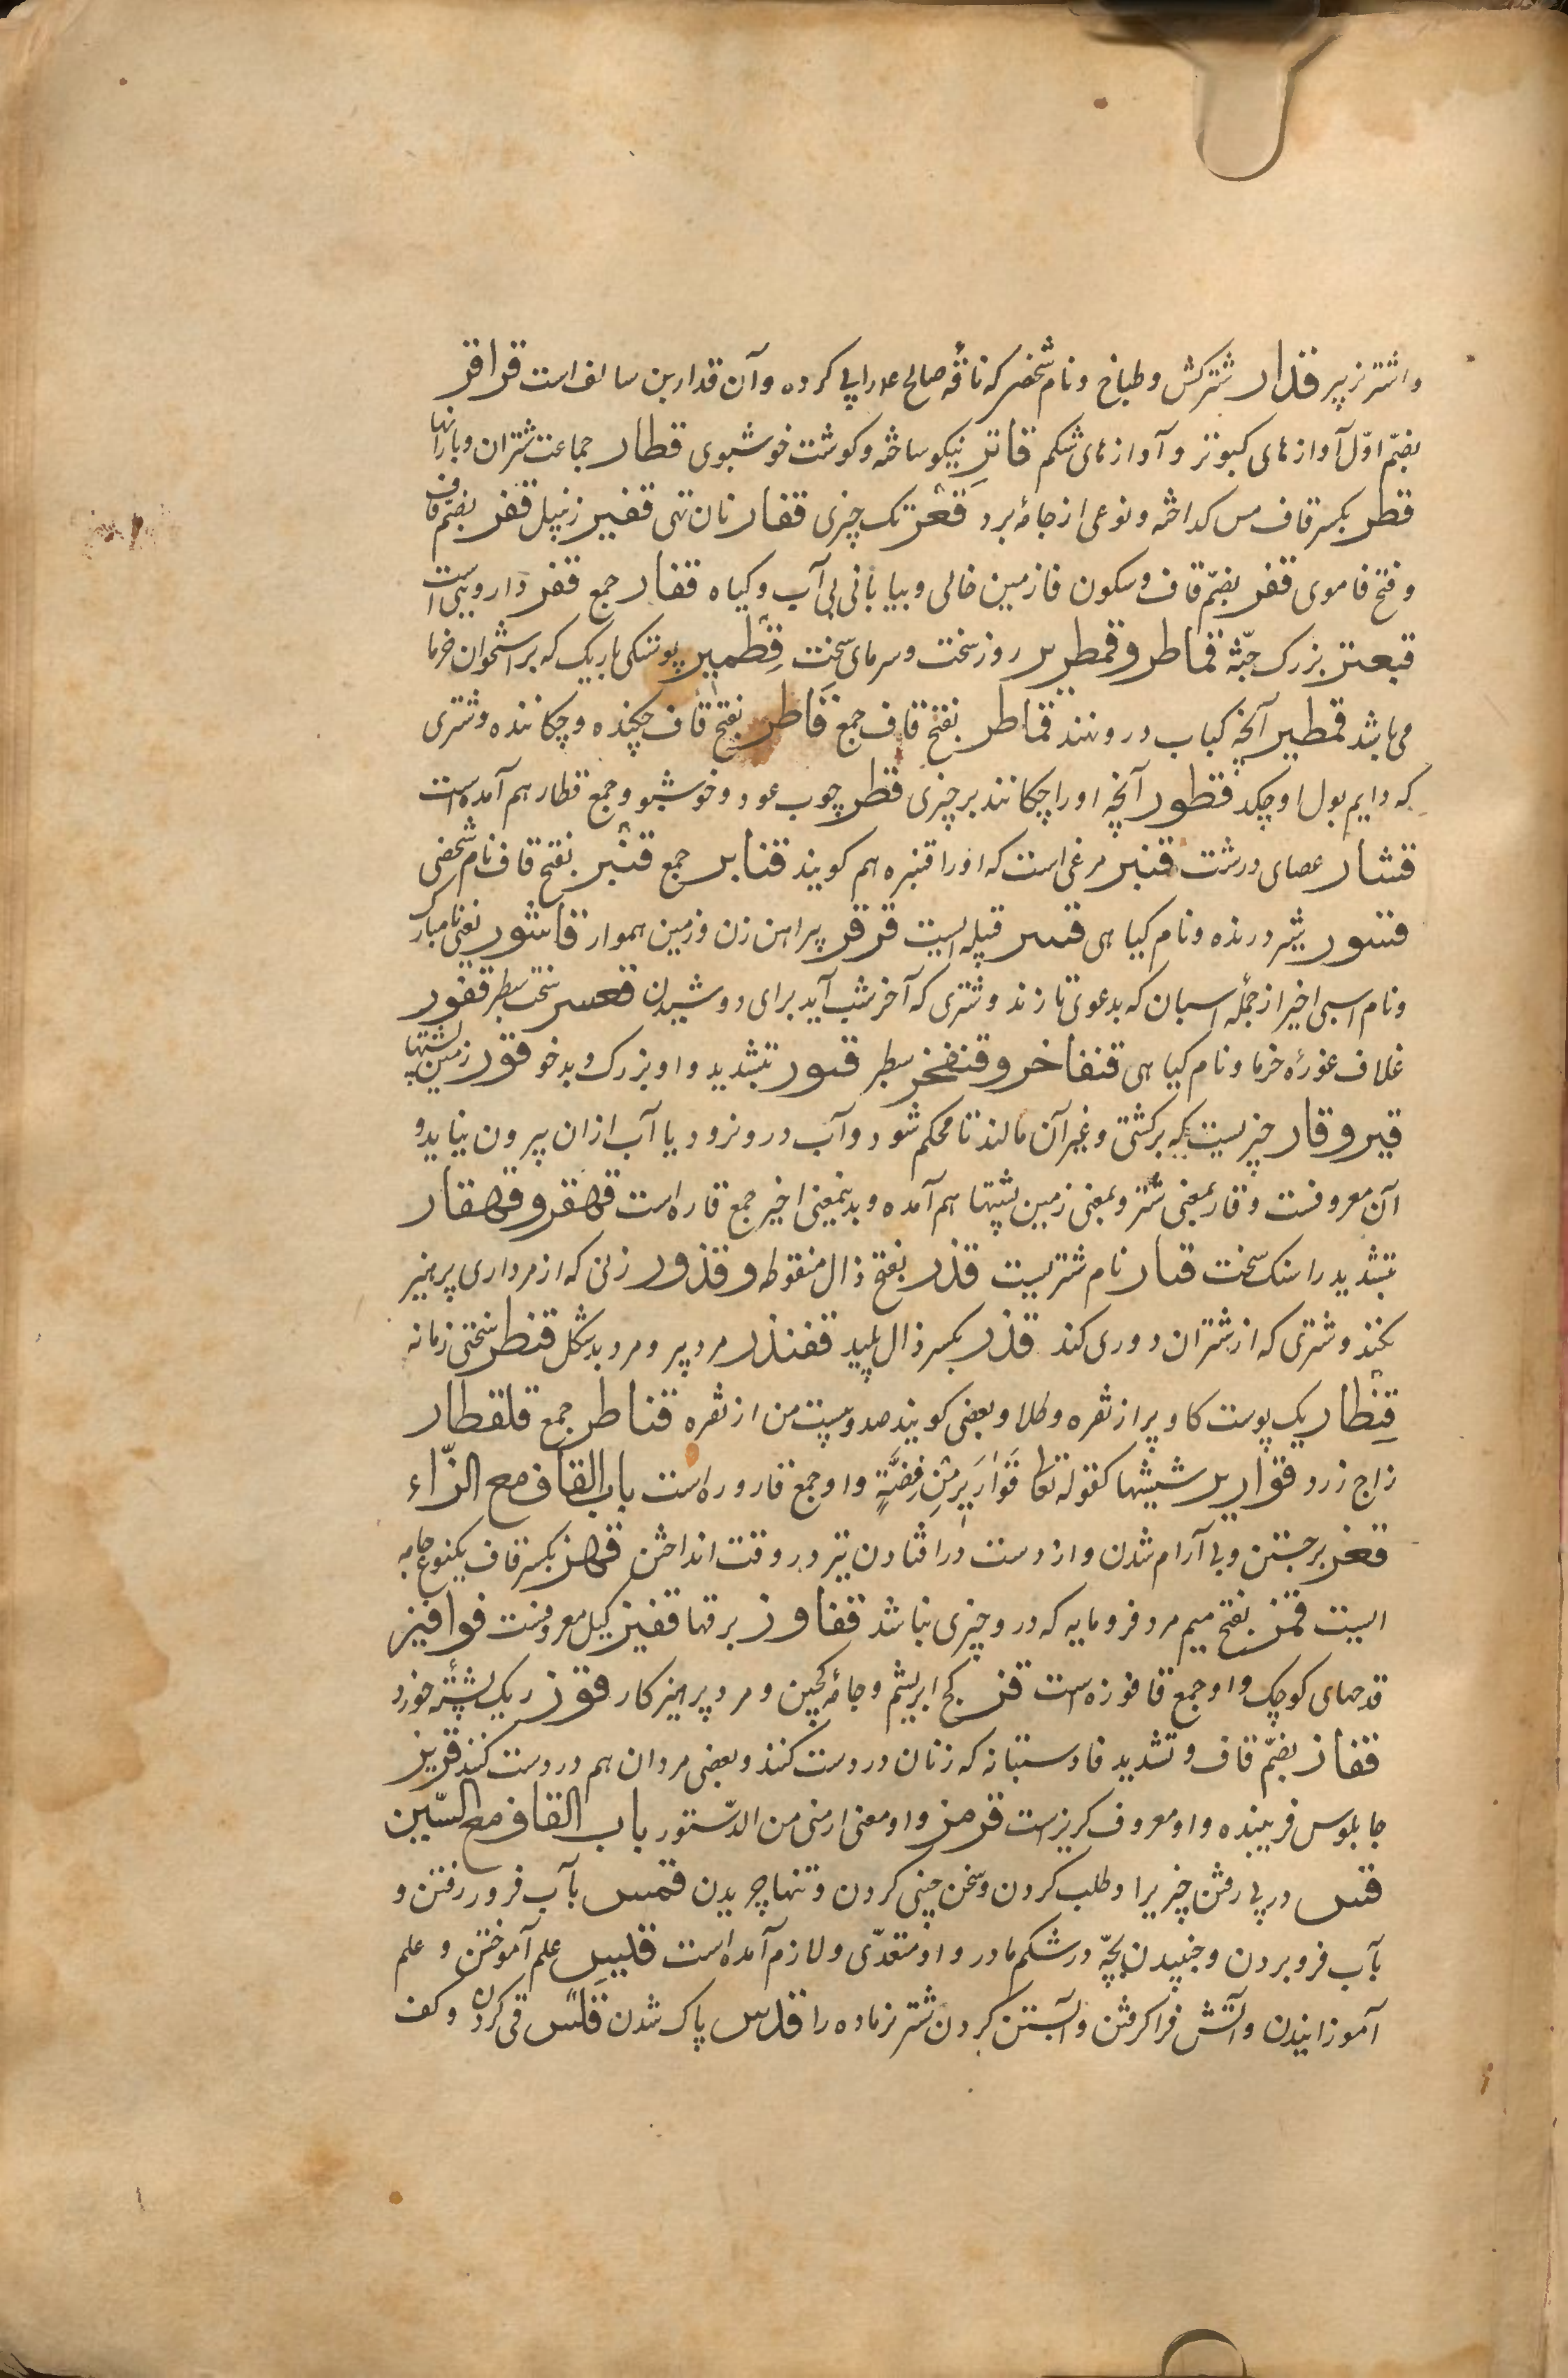 واشتر نر پیر قدار شترکش و طباخ و نام شخصی که ناقهٔ صالح ع را پی کرده و آن قدار بن سالف است قراقر
بضمّ اوّل آوازهای کبوتر و آوازهای شکم قاتر نیکو ساخته و کوشت خوشبوی قطار جماعت شتران و بارانها
قطر بکسر قاف مس کداخته و نوعی از جامهٔ برد قعر تک چیزی قفار نان تهی قفیر زنپیل قفر بضمّ قاف
و فتح فا موی قفر بضمّ قاف و سکون فا زمین خالی و بیابانی بی آب و کیاه قفار جمع قفر داروییی است
قبعثر بزرک جثّه قماطر و قمطریر روز سخت و سرمای سخت قطمیر پوستکی باریک که بر استخوان خرما
می باشد قمطیر آنچه کتاب درو نهند قماطر بفتح قاف جمع قاطر بفتح قاف چکنده و چکاننده و شتری
که دایم بول او چکد قطور آنچه او را چکانند بر چیزی قطر چوب عود و خوشبو و جمع قطار هم آمده است
قشار عصای درشت قنبر مرغی است که او را قنبره هم کویند قنابر جمع قنبر بفتح قاف نام شخصی
قسور شیر درنده و نام کیاهی قسر قبیله ایست قرقر پیراهن زن و زمین هموار قاشور یعنی نامبارک
و نام اسبی اخیر از جملهٔ اسبان که بدعوی تازند و شتری که آخر شب آید برای دوشیدن قعسر سخت سطبر قفور
غلاف غورهٔ خرما و نام کیاهی قنفاخر و قنفخر سطبر قسور بتشدید واو بزرک و بدخو قور زمین پشتها
قیر و قار چیزیست که بر کشتی و غیر آن مالند تا محکم شود و آب درو نرود یا آب ازان بیرون نیاید و
آن معروفست و قار بمعنی شتر و بمعنی زمین پشتها هم آمده و بدینمعنی اخیر جمع قاره است قهقر و قهقار
بتشدید را سنک سخت قیار نام شتریست قذر بفتح ذال منقوطه و قذور زنی که از مرداری پرهیز
بکند و شتری که از شتران دوری کند قذر بکسر ذال پلید قفندر مرد پیر و مرد بدشکل قنطر سختی زمانه
قنطار یک پوست کاو پر از نقره و طلا و بعضی کویند صد و بیست من از نقره قناطر جمع قلقطار
زاج زرد قواریر شیشها کقوله تعا قَوَارِیرَ مِنْ فِضَّةٍ و او جمع قاروره است باب القاف مع الزّاء
قعز برجستن و بی آرام شدن و از دست درافتادن تیر در وقت انداختن قهز بکسر قاف یکنوع جامه
ایست قمز بفتح میم مرد فرومایه که درو چیزی نباشد قفاوز برقها قفیز کیل معروفست قوافیز
قدحهای کوچک و او جمع قافوزه است قز کج ابریشم و جامهٔ کجین و مرد پرهیز کار قوز ریک پشتهٔ خورد
قفاز بضمّ قاف و تشدید فا دستبانه که زنان در دست کنند و بعضی مردان هم در دست کنند قربز
چابلوس فریبنده و او معروف کربزست قرمز و او معنی ارمنی من الدّستور باب القاف مع السّین
قس در پی رفتن چیزیرا و طلب کردن و سخن چینی کردن و تنها چریدن قمس بآب فرو رفتن و
بآب فرو بردن و جنبیدن بچّه در شکم مادر و او متعدّی و لازم آمده است قلیس علم آموختن و علم
آموزانیدن و آتش فراکرفتن و آبستن کردن شتر نر ماده را قدس پاک شدن قلس قی کردن و کف